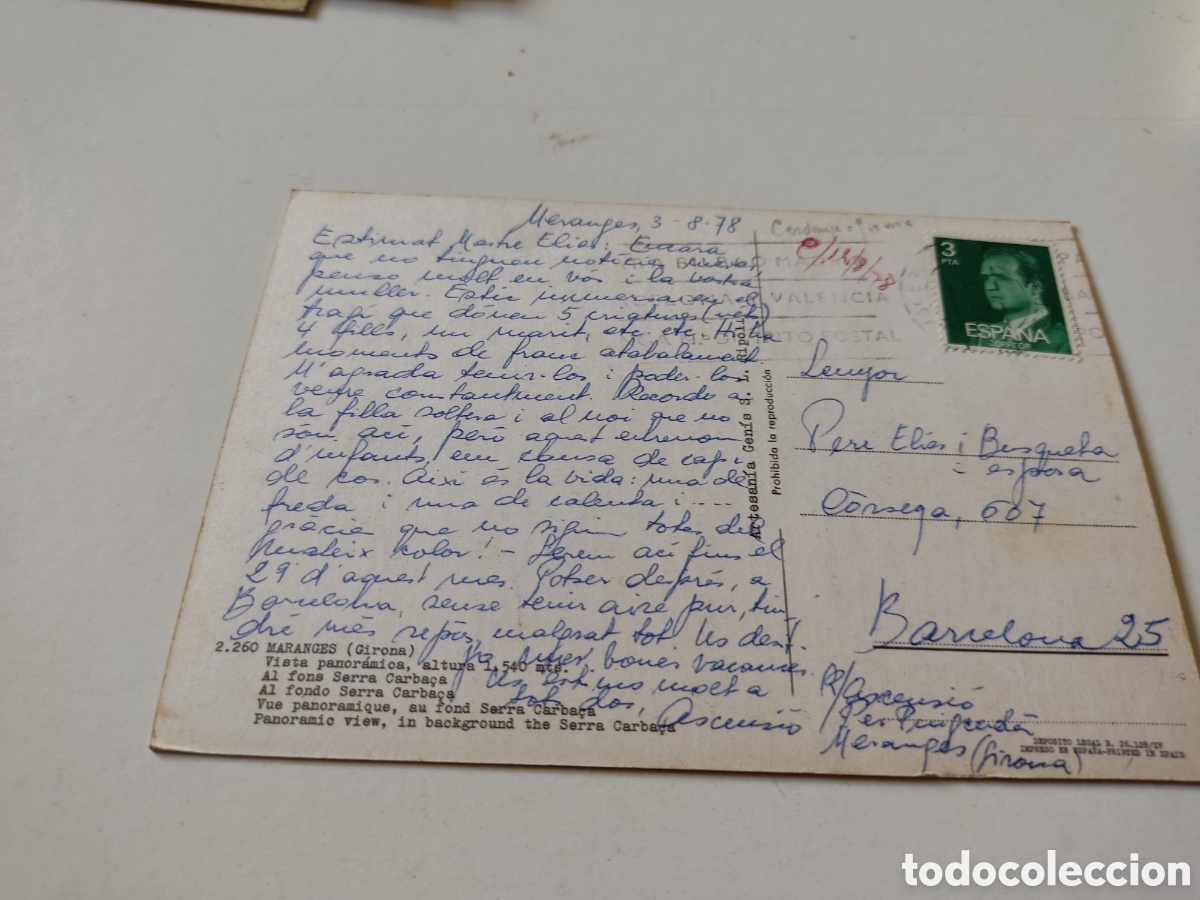 Meranges, 3-8-78
Estimat Mestre Elies: Encara
que no tinguem notícies meves,
penso molt en vós i la vostra
muller. Estic immersa en el
tragí que donen 5 criatures (nét)
4 fills, un marit, etc. etc. Hi ha
moments de franc atabalament
M'agrada tenir-los i poder-los
veure constantment. Recordo a
la filla soltera i al noi que no
són ací, però aquest
d'infants, em cansa de cap i
de cos. Així és la vida: una de
freda i una de calenta i ....
gràcia que no siguin totes del
mateix color! - Serem ací fins el
29 d'aquest mes. Potser després, a
Barcelona, sense tenir aire pur, tin-
dré més repòs, malgrat tot. Us desit-
ja unes bones vacances.
Us estimo molt a
tots dos, Ascensió
2.260 MARANGES (Girona)
Vista panorámica, altura 1.540 mts.
Al fons Serra Carbaça
Al fondo Serra Carbaça
Vue panoramique, au fond Serra Carbaça
Panoramic view, in background the Serra Carbaça
Artesanía Genís S. L. Ripoll
Prohibida la reproducción
VALENCIA
POSTAL
3
PTA
ESPAÑA
CORREOS
Senyor
Pere Elies i Busqueta
i esposa
Còrsega, 607
Barcelona 25
R/Ascensió
Meranges (Girona)
DEPOSITO LEGAL B.
IMPRESO EN ESPAÑA-PRINTED IN SPAIN
todocoleccion